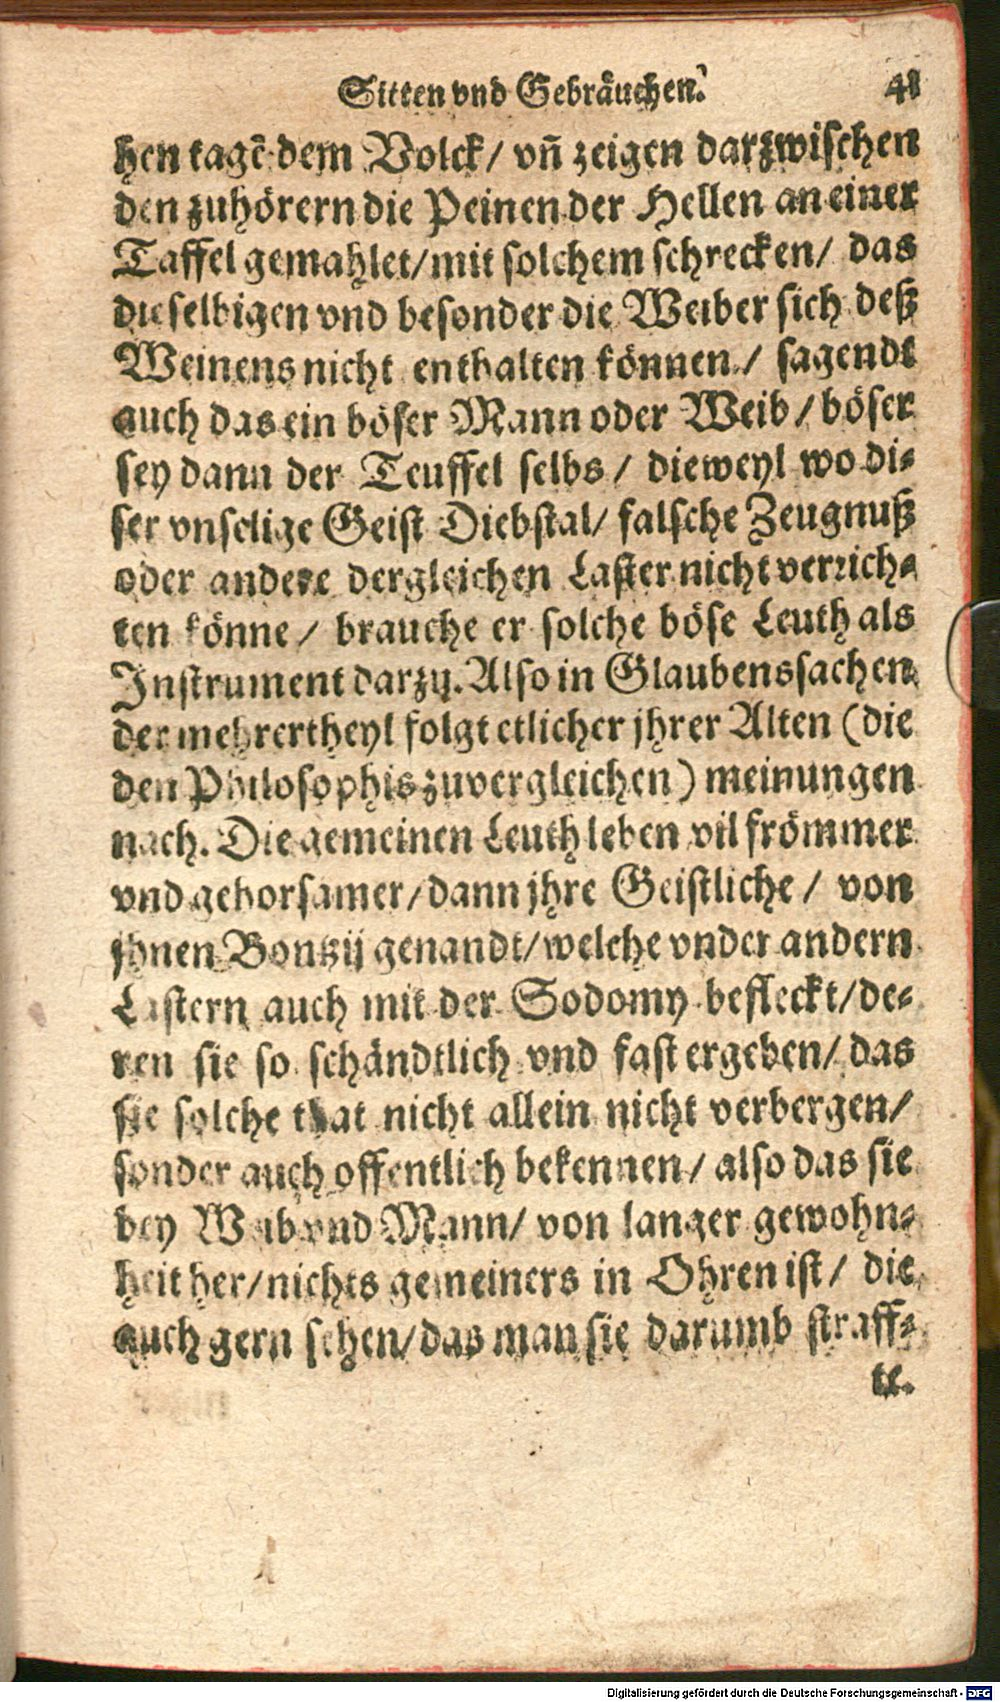 Sitten vnd Gebräuchen. 41
hen tagẽ dem Volck/ vñ zeigen darzwischen
den zuhörern die Peinen der Hellen an einer
Taffel gemahlet/ mit solchem schrecken/ das
dieselbigen vnd besonder die Weiber sich deß
Weinens nicht enthalten können/ sagendt
auch das ein böser Mann oder Weib/ böser
sey dann der Teuffel selbs/ dieweyl wo di-
ser vnselige Geist Diebstal/ falsche Zeugnuß
oder andere dergleichen Laster nicht verrich-
ten könne/ brauche er solche böse Leuth als
Instrument darzu. Also in Glaubenssachen
der mehrertheyl folgt etlicher jhrer Alten (die
den Philosophis zuvergleichen) meinungen
nach. Die gemeinen Leuth leben vil frömmer
vnd gehorsamer/ dann jhre Geistliche/ von
jhnen Bontzij genandt/ welche vnder andern
Lastern auch mit der Sodomy befleckt/ de-
ren sie so schändtlich vnd fast ergeben/ das
sie solche that nicht allein nicht verbergen/
sonder auch offentlich bekennen/ also das sie
bey Weib vnd Mann/ von langer gewohn-
heit her/ nichts gemeiners in Ohren ist/ die
auch gern sehen/ das man sie darumb straff-
te.
Digitalisierung gefördert durch die Deutsche Forschungsgemeinschaft - DFG